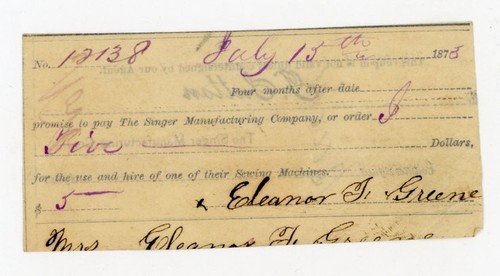 No. 12138 July 15th 1873
Four months after date I
promise to pay The Singer Manufacturing Company, or order
Five Dollars,
for the use and hire of one of their Sewing Machines.
$ 5 x Eleanor F. Greene
Mrs Eleanor F. Greene